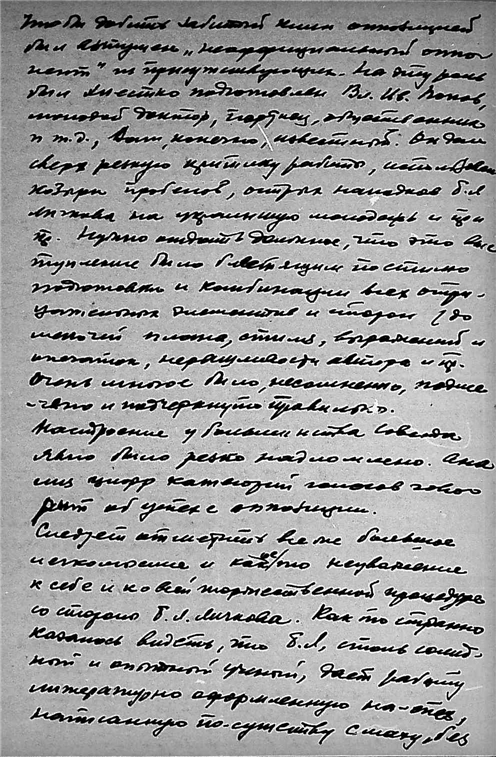 Чтобы добить забитый клин оппозицией
был выпущен "неофициальный оппо
нент" из присутствующих. На эту роль
был хлестко подготовлен Вл. Ив. Попов,
молодой доктор, партиец, общественник
и т.д., Вам, конечно, известный. Он дал
сверх резкую критику работы, использовав
козыри пробелов, острых нападков Б.Л.
Личкова на украинскую молодежь и
пр. Нужно отдать должное, что это выс
тупление было блестящим по стилю
подготовки и комбинации всех отри
цательных элементов и сторон (до
мелочей плана, стиля, выражений и
опечаток, нервущимости автора и пр.
Очень многое было, несомненно, подме
чено и подчеркнуто правильно.
Настроение у большинства Совета
явно было резко надломлено. Ана
лиз цифр категорий голосов гово
рит об успехе оппозиции.
Следует отметить все же большое
легкомыслие и какое-то неуважение
к себе и ко всей торжественной процедуре
со стороны Б.Л. Личкова. Как-то странно
казалось видеть, что Б.Л., столь солид-
ный и опытный ученый, дает работу
литературно оформленную на-спех,
написанную по-существу с маху, без